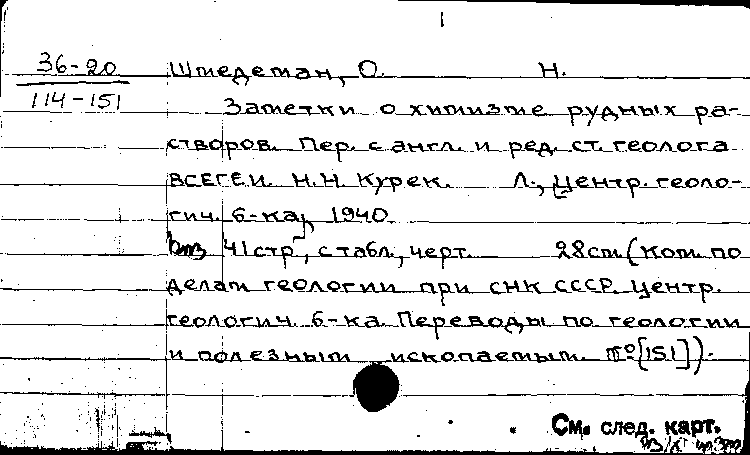 1
36-20 Штедеман, О. Н.
114-151 Заметки о химизме рудных ра-
створов. Пер. с англ. и ред. ст. геолога
ВСЕГЕИ Н.Н. Курек. Л., Центр. геоло-
гич. б-ка, 1940.
41 стр., с табл., черт. 28 см. (Ком. по
делам геологии при СНК СССР. Центр.
геологич. б-ка. Переводы по геологии
и полезным ископаемым. №[151]).
См. след. карт.